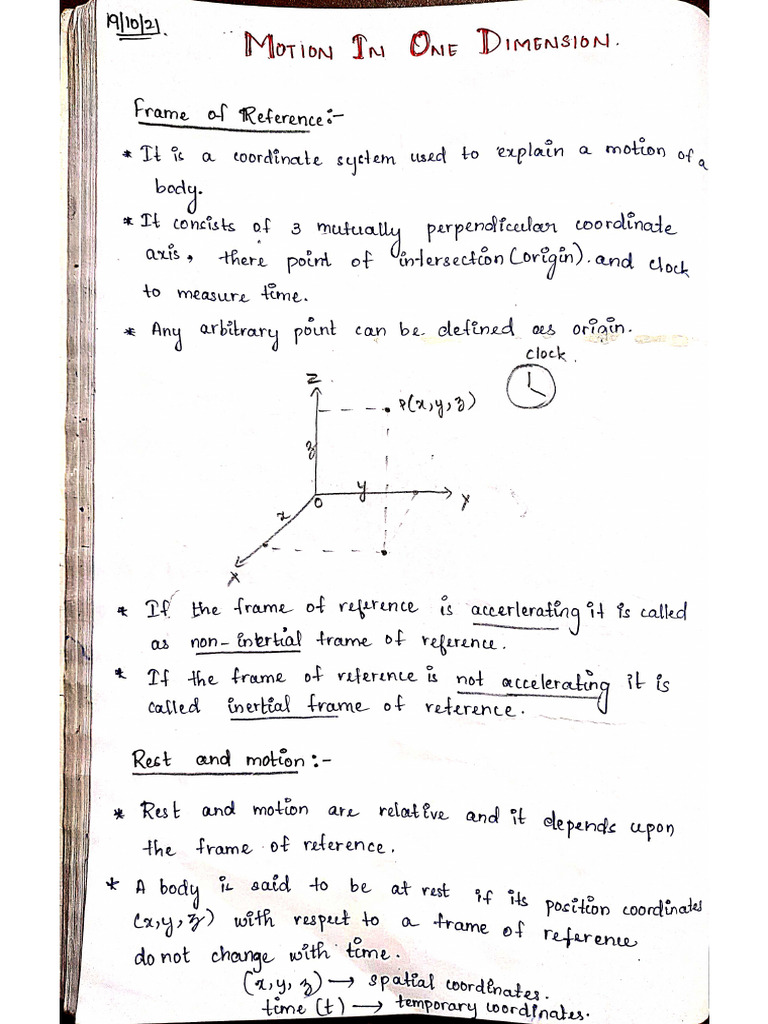 19/10/21.
MOTION IN ONE DIMENSION.
Frame of Reference:-
* It is a coordinate system used to explain a motion of a
body.
* It consists of 3 mutually perpendicular coordinate
axis, there point of intersection (origin). and clock
to measure time.
* Any arbitrary point can be defined as origin.
clock.
Z
P(x,y,z)
z
y
O
Y
x
X
* If the frame of reference is accerlerating it is called
as non-intertial frame of reference.
* If the frame of reference is not accelerating it is
called inertial frame of reference.
Rest and motion:-
* Rest and motion are relative and it depends upon
the frame of reference.
* A body is said to be at rest if its position coordinates
(x,y,z) with respect to a frame of reference
do not change with time.
(x,y,z) → spatial coordinates.
time (t) → temporary coordinates.